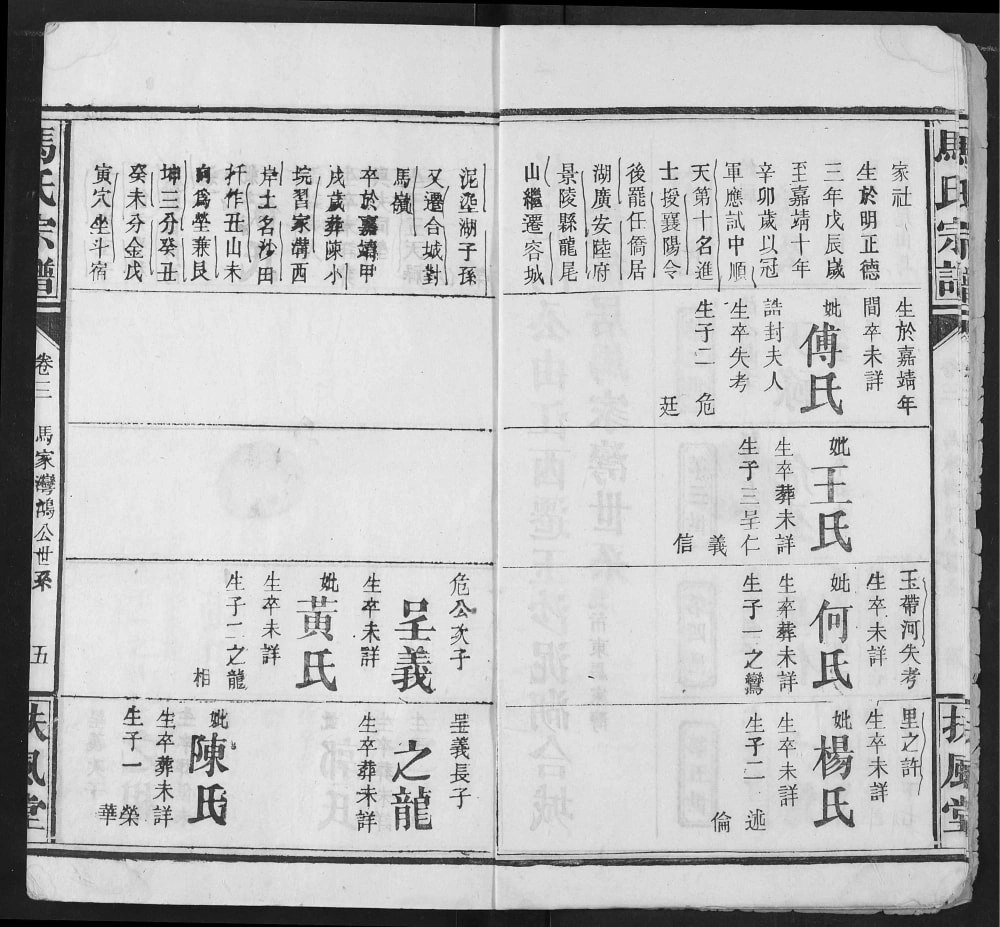 馬氏宗譜
扶風堂
家社
生於明正德
三年戊辰歲
至嘉靖十年
辛卯歲以冠
軍應試中順
天第十名進
士授襄陽令
後罷任僑居
湖廣安陸府
景陵縣龍尾
山繼遷容城
生於嘉靖年
間卒未詳
妣傅氏
誥封夫人
生卒失考
生子二
危
廷
妣王氏
生卒葬未詳
生子三呈仁
義
信
玉帶河失考
生卒未詳
妣何氏
生卒葬未詳
生子一之鸞
里之許
生卒未詳
妣楊氏
生卒葬未詳
生子二
述
倫
泥湖子孫
又遷合城對
馬嶺
卒於嘉靖甲
戌歲葬陳小
垸習家溝西
岸土名沙田
扦作丑山未
向爲塋兼艮
坤三分癸丑
癸未分金戊
寅穴坐斗宿
危公次子
呈義
生卒未詳
妣黃氏
生卒未詳
生子二之龍
相
呈義長子
之龍
生卒葬未詳
妣陳氏
生卒葬未詳
生子一
榮
華
馬氏宗譜
卷三
馬家灣鴻公世系
五
扶風堂